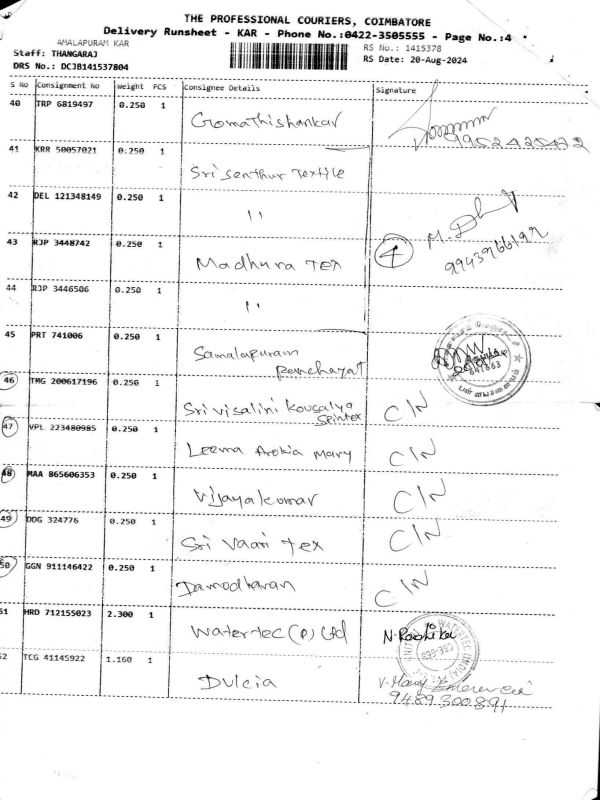 THE PROFESSIONAL COURIERS, COIMBATORE
Delivery Runsheet - KAR - Phone No.:0422-3505555 - Page No.:4
AMALAPURAM KAR
RS No.: 1415378
Staff: THANGARAJ
RS Date: 20-Aug-2024
DRS No.: DCJB141537804
S No Consignment No Weight PCS Consignee Details Signature
40 TRP 6819497 0.250 1 Gomathishankar
9952425472
41 KRR 50057021 0.250 1 Sri Senthur Textile
42 DEL 121348149 0.250 1 "
M. 
43 RJP 3448742 0.250 1 Madhura Tex 4
9943966192
44 RJP 3446506 0.250 1 "
45 PRT 741006 0.250 1 Samalapuram
Panchayat
641663
46 TMG 200617196 0.250 1 Sri Visalini Kousalya C/N
Spintex
47 VPL 223480985 0.250 1 Leema Arokia Mary C/N
48 MAA 865606353 0.250 1 Vijayakumar C/N
49 DDG 324776 0.250 1 Sri Vaari Tex C/N
50 GGN 911146422 0.250 1 Damodharan C/N
51 HRD 712155023 2.300 1 Watertec (P) Ltd N. Radhika
52 TCG 41145922 1.160 1 Dulcia V. Mary
9489300891